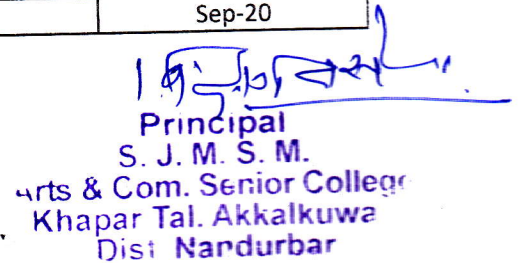 Sep-20
Principal
S. J. M. S. M.
Arts & Com. Senior College
Khapar Tal. Akkalkuwa
Dist Nandurbar